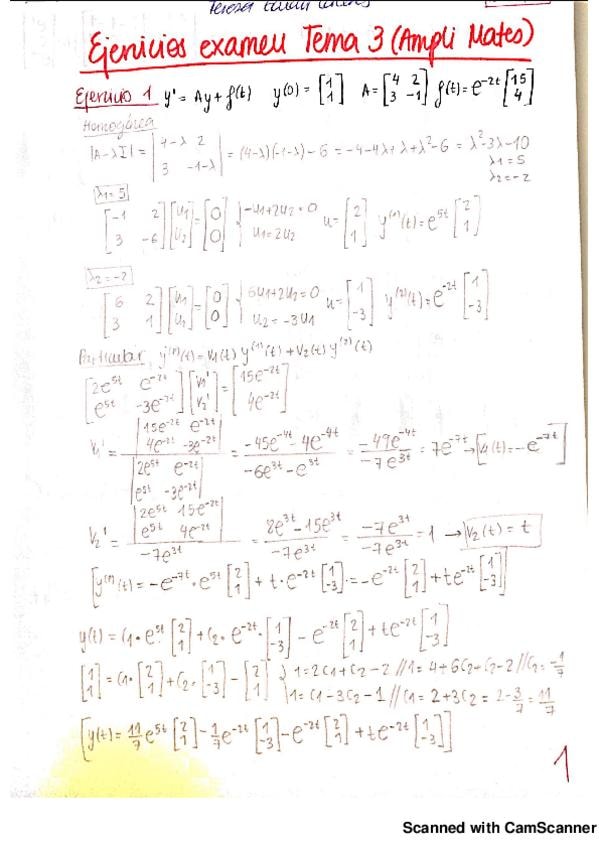 Ejercicios examen Tema 3 (Ampli Mates)
Ejercicio 1 y' = Ay + f(t) y(0) = [1 1] A = [4 2 3 -1] f(t) = e^-2t [15 4]
Homogénea
|A-λI| = |4-λ 2 3 -1-λ| = (4-λ)(-1-λ) - 6 = -4-4λ+λ+λ²-6 = λ²-3λ-10
λ1 = 5
λ2 = -2
λ1 = 5
[-1 2 3 -6][u1 u2] = [0 0] { -u1+2u2 = 0 u1 = 2u2 u = [2 1] y^(1)(t) = e^5t [2 1]
λ2 = -2
[6 2 3 1][u1 u2] = [0 0] { 6u1+2u2 = 0 u2 = -3u1 u = [1 -3] y^(2)(t) = e^-2t [1 -3]
Particular y^(p)(t) = v1(t) y^(1)(t) + v2(t) y^(2)(t)
[2e^5t e^-2t e^5t -3e^-2t][v1' v2'] = [15e^-2t 4e^-2t]
v1' = |15e^-2t e^-2t 4e^-2t -3e^-2t| / |2e^5t e^-2t e^5t -3e^-2t| = (-45e^-4t - 4e^-4t) / (-6e^3t - e^3t) = -49e^-4t / -7e^3t = 7e^-7t → [v1(t) = -e^-7t]
v2' = |2e^5t 15e^-2t e^5t 4e^-2t| / -7e^3t = (8e^3t - 15e^3t) / -7e^3t = -7e^3t / -7e^3t = 1 → [v2(t) = t]
[y^(p)(t) = -e^-7t · e^5t [2 1] + t · e^-2t [1 -3] = -e^-2t [2 1] + te^-2t [1 -3]]
y(t) = C1 · e^5t [2 1] + C2 · e^-2t · [1 -3] - e^-2t [2 1] + te^-2t [1 -3]
[1 1] = C1 · [2 1] + C2 · [1 -3] - [2 1] { 1 = 2C1 + C2 - 2 // 1 = 4 + 6C2 + C2 - 2 // C2 = -1/7
1 = C1 - 3C2 - 1 // C1 = 2 + 3C2 = 2 - 3/7 = 11/7
[y(t) = 11/7 e^5t [2 1] - 1/7 e^-2t [1 -3] - e^-2t [2 1] + te^-2t [1 -3]]
1
Scanned with CamScanner